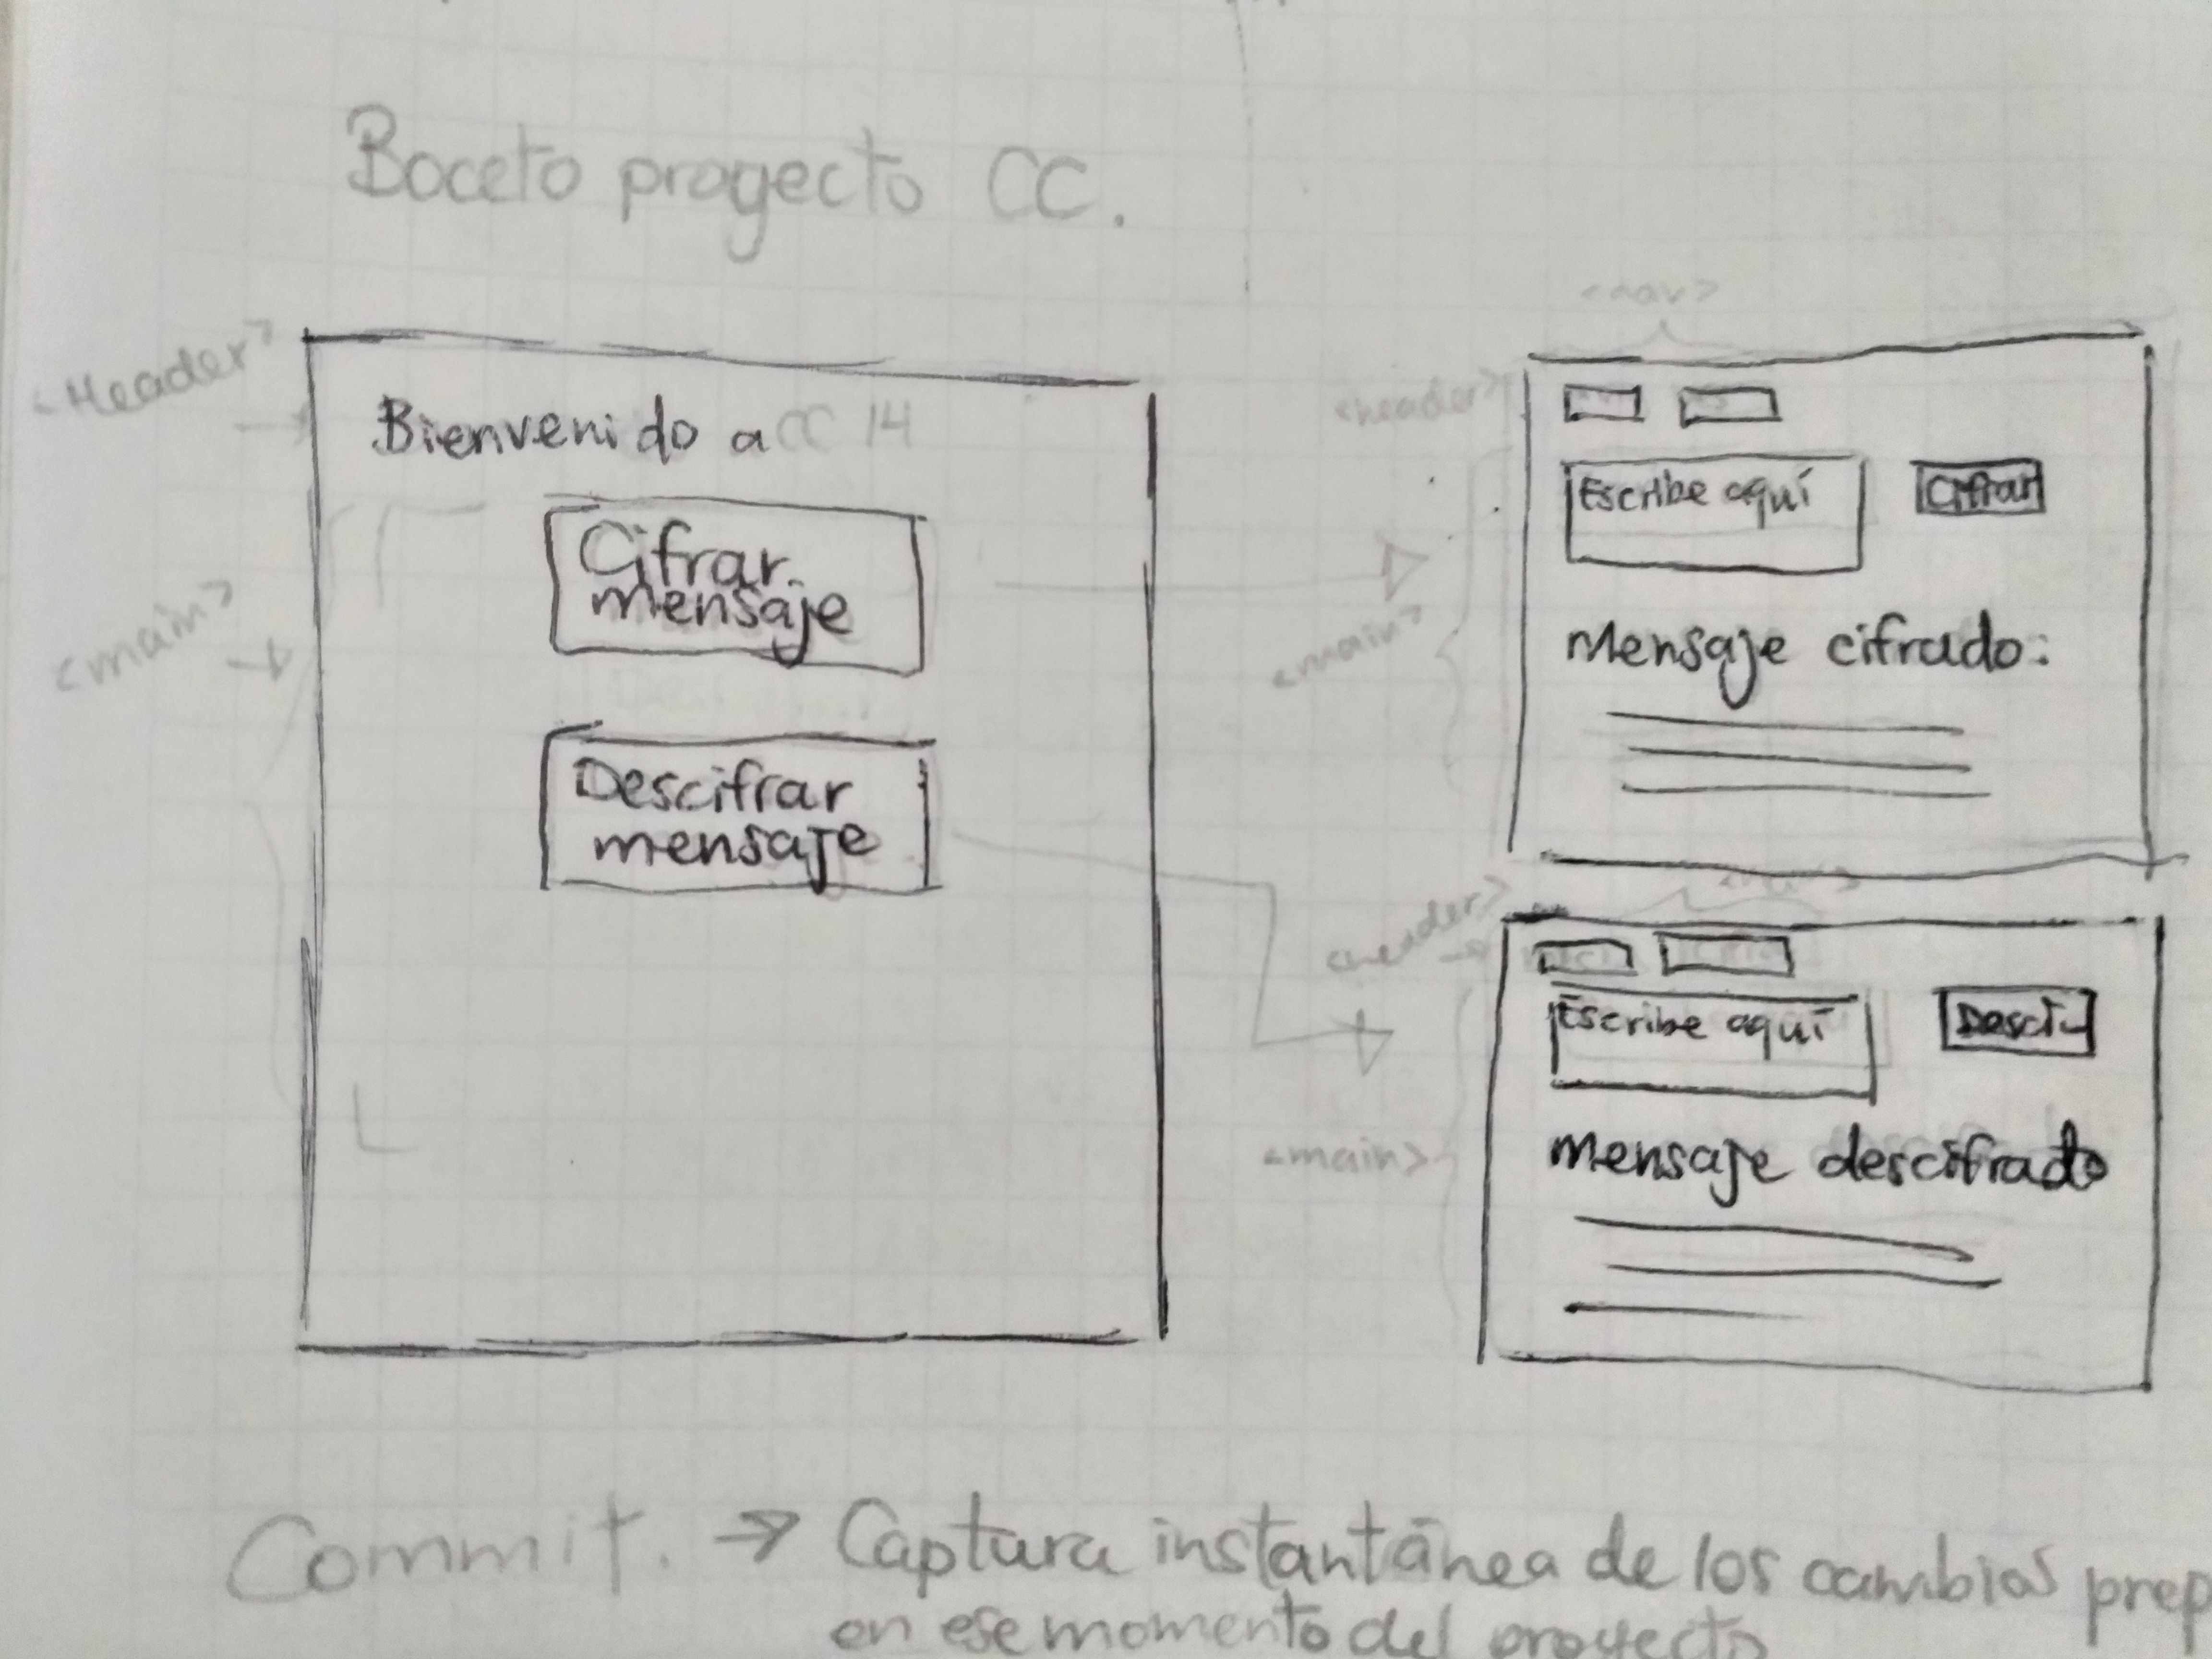 Boceto proyecto CC.
<Header>
Bienvenido a CC 14
<main>
Cifrar
mensaje
Descifrar
mensaje
<nav>
<header>
Escribe aquí
Cifrar
<main>
Mensaje cifrado:
<nav>
<header>
Escribe aquí
Desci
<main>
mensaje descifrado
Commit. → Captura instantánea de los cambios prep
en ese momento del proyecto